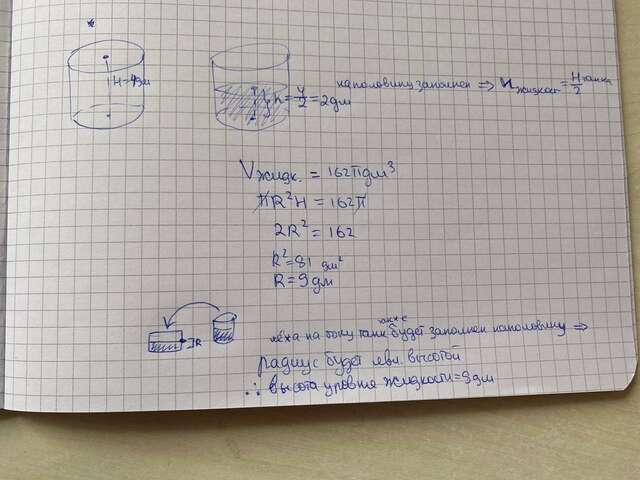 H=4дм
h=4/2=2дм
наполовину заполнен ⇒ Hжидкост=Hтанка/2
Vжидк. = 162πдм³
πR²H = 162π
2R² = 162
R²=81 дм²
R=9дм
R
лёжа на боку танк также будет заполнен наполовину ⇒
радиус будет явл. высотой
∴ высота уровня жидкости=9дм